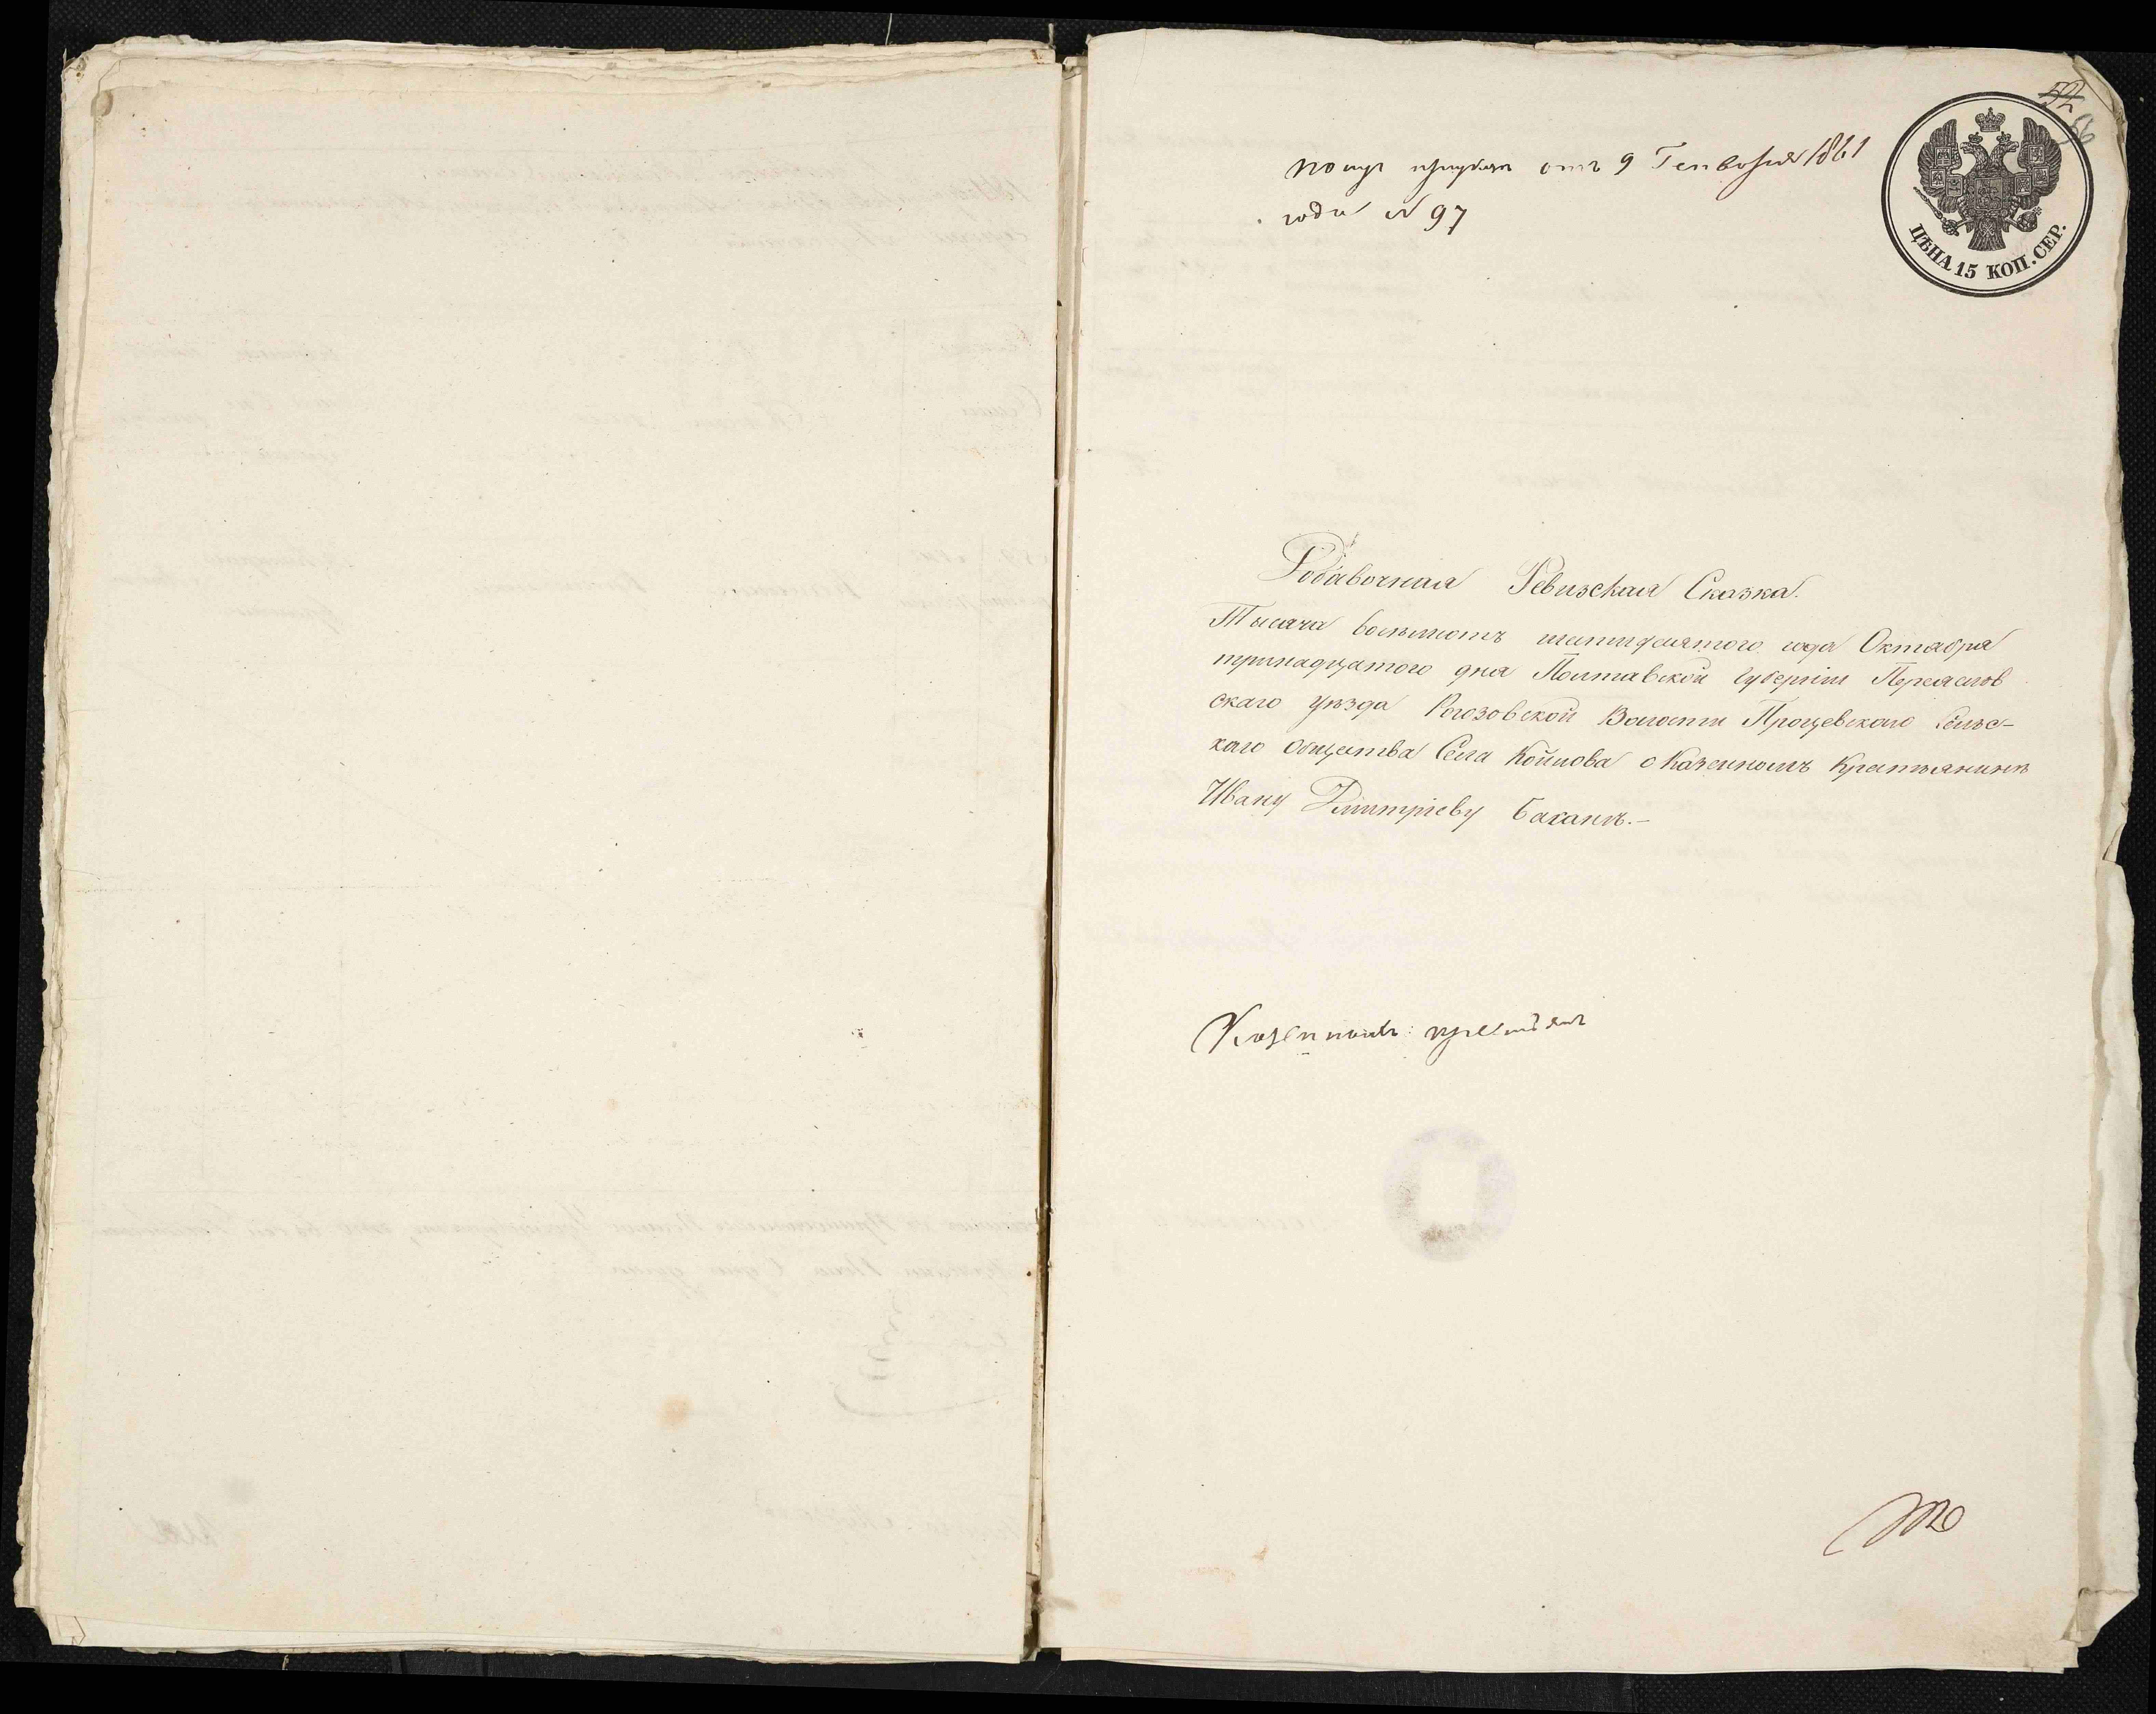 52
56
ЦѢНА 15 КОП. СЕР.
отъ 9 Генваря 1861
года № 97
Добавочная Ревизская Сказка.
Тысяча восемьсотъ шестидесятого года Октября
тринадцатого дня Полтавской Губерніи Переяслов
скаго уѣзда Рогозовской Волости Процевскаго Сельс-
каго Общества Села Койлова о Казенномъ Крестьянинѣ
Ивану Дмитріеву Бакалѣ.–
Казенныхъ крестьянъ